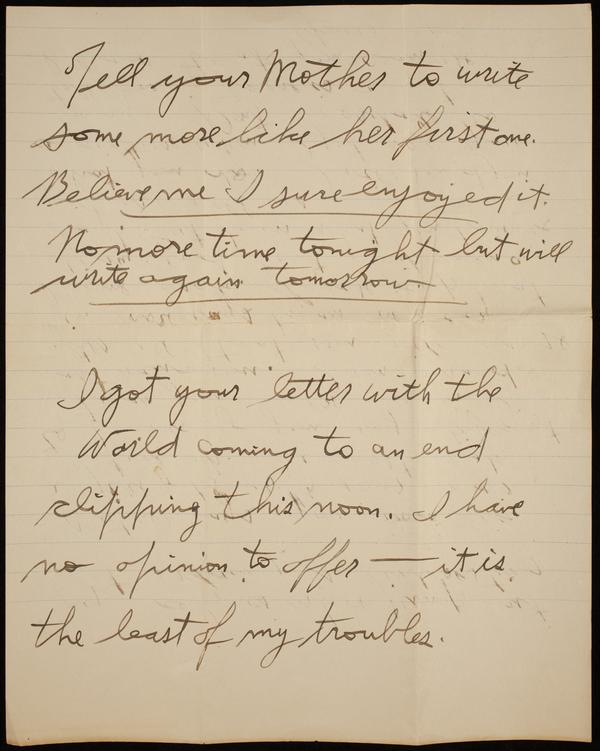 Tell your Mother to write
some more like her first one.
Believe me I sure enjoyed it.
No more time tonight but will
write again tomorrow.
I got your letter with the
World coming to an end
clipping this noon. I have
no opinion to offer — it is
the least of my troubles.